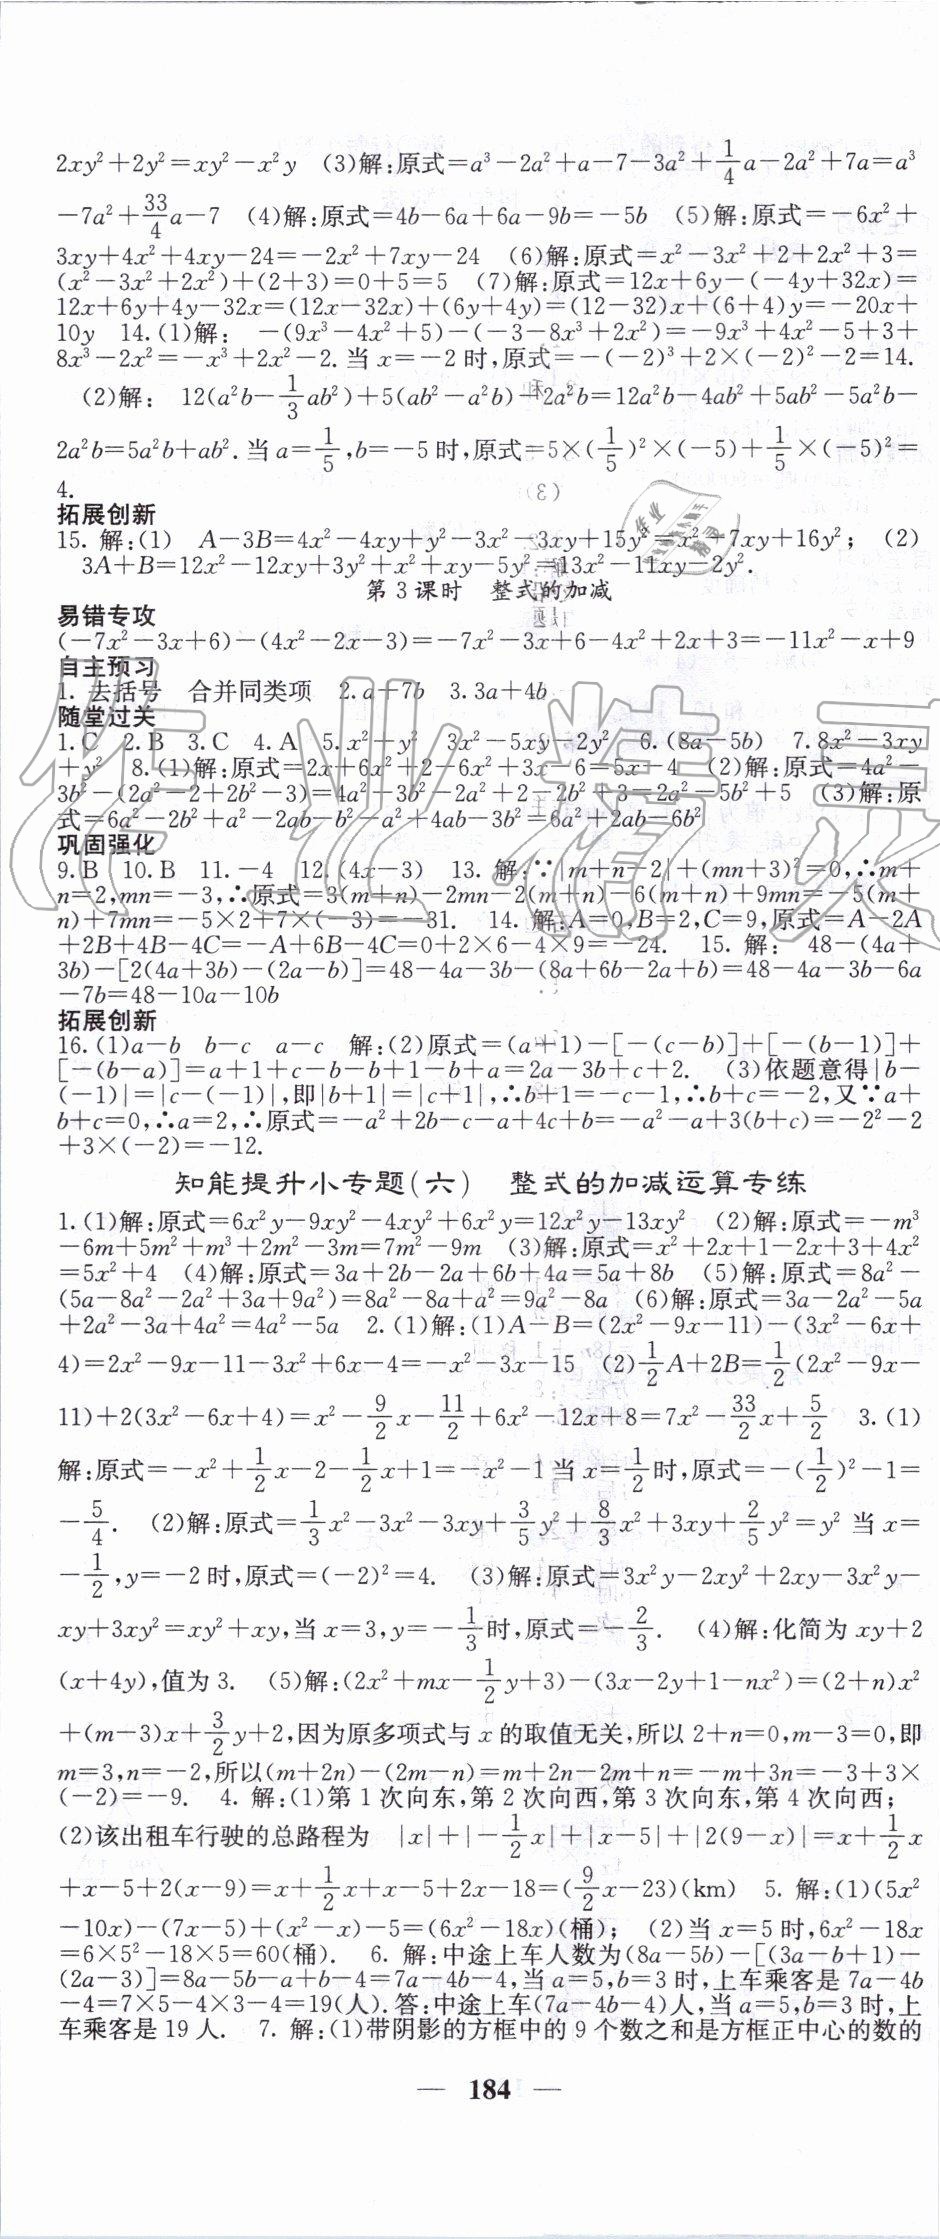 2xy²+2y²=xy²-x²y (3)解:原式=a³-2a²+a-7-3a²+1/4a-2a²+7a=a³
-7a²+33/4a-7 (4)解:原式=4b-6a+6a-9b=-5b (5)解:原式=-6x²+
3xy+4x²+4xy-24=-2x²+7xy-24 (6)解:原式=x²-3x²+2+2x²+3=
(x²-3x²+2x²)+(2+3)=0+5=5 (7)解:原式=12x+6y-(-4y+32x)=
12x+6y+4y-32x=(12x-32x)+(6y+4y)=(12-32)x+(6+4)y=-20x+
10y 14.(1)解: -(9x³-4x²+5)-(-3-8x³+2x²)=-9x³+4x²-5+3+
8x³-2x²=-x³+2x²-2.当x=-2时,原式=-(-2)³+2×(-2)²-2=14.
(2)解: 12(a²b-1/3ab²)+5(ab²-a²b)-2a²b=12a²b-4ab²+5ab²-5a²b-
2a²b=5a²b+ab².当a=1/5,b=-5时,原式=5×(1/5)²×(-5)+1/5×(-5)²=
4.
拓展创新
15. 解:(1) A-3B=4x²-4xy+y²-3x²-3xy+15y²=x²-7xy+16y²; (2)
3A+B=12x²-12xy+3y²+x²+xy-5y²=13x²-11xy-2y².
第3课时 整式的加减
易错专攻
(-7x²-3x+6)-(4x²-2x-3)=-7x²-3x+6-4x²+2x+3=-11x²-x+9
自主预习
1. 去括号 合并同类项 2.a+7b 3.3a+4b
随堂过关
1.C 2.B 3.C 4.A 5.x²+y² 3x²-5xy-2y² 6.(8a-5b) 7.8x²-3xy
+y² 8.(1)解:原式=2x+6x²+2-6x²+3x-6=5x-4 (2)解:原式=4a²-
3b²-(2a²-2+2b²-3)=4a²-3b²-2a²+2-2b²+3=2a²-5b²+5 (3)解:原
式=6a²-2b²+a²-2ab-b²-a²+4ab-3b²=6a²+2ab-6b²
巩固强化
9.B 10.B 11.-4 12.(4x-3) 13. 解:∵|m+n-2|+(mn+3)²=0,∴m+
n=2,mn=-3,∴原式=3(m+n)-2mn-2(m+n)-6(m+n)+9mn=-5(m+
n)+7mn=-5×2+7×(-3)=-31. 14. 解:A=0,B=2,C=9,原式=A-2A
+2B+4B-4C=-A+6B-4C=0+2×6-4×9=-24. 15. 解: 48-(4a+
3b)-[2(4a+3b)-(2a-b)]=48-4a-3b-(8a+6b-2a+b)=48-4a-3b-6a
-7b=48-10a-10b
拓展创新
16.(1)a-b b-c a-c 解:(2)原式=(a+1)-[-(c-b)]+[-(b-1)]+
[-(b-a)]=a+1+c-b-b+1-b+a=2a-3b+c+2. (3)依题意得|b-
(-1)|=|c-(-1)|,即|b+1|=|c+1|,∴b+1=-c-1,∴b+c=-2,又∵a+
b+c=0,∴a=2,∴原式=-a²+2b-c-a+4c+b=-a²-a+3(b+c)=-2²-2
+3×(-2)=-12.
知能提升小专题(六) 整式的加减运算专练
1.(1)解:原式=6x²y-9xy²-4xy²+6x²y=12x²y-13xy² (2)解:原式=-m³
-6m+5m²+m³+2m²-3m=7m²-9m (3)解:原式=x²+2x+1-2x+3+4x²
=5x²+4 (4)解:原式=3a+2b-2a+6b+4a=5a+8b (5)解:原式=8a²-
(5a-8a²-2a²+3a+9a²)=8a²-8a+a²=9a²-8a (6)解:原式=3a-2a²-5a
+2a²-3a+4a²=4a²-5a 2.(1)解:(1)A-B=(2x²-9x-11)-(3x²-6x+
4)=2x²-9x-11-3x²+6x-4=-x²-3x-15 (2)1/2A+2B=1/2(2x²-9x-
11)+2(3x²-6x+4)=x²-9/2x-11/2+6x²-12x+8=7x²-33/2x+5/2 3.(1)
解:原式=-x²+1/2x-2-1/2x+1=-x²-1当x=1/2时,原式=-(1/2)²-1=
-5/4. (2)解:原式=1/3x²-3x²-3xy+3/5y²+8/3x²+3xy+2/5y²=y² 当x=
-1/2,y=-2时,原式=(-2)²=4. (3)解:原式=3x²y-2xy²+2xy-3x²y-
xy+3xy²=xy²+xy,当x=3,y=-1/3时,原式=-2/3. (4)解:化简为xy+2
(x+4y),值为3. (5)解:(2x²+mx-1/2y+3)-(3x-2y+1-nx²)=(2+n)x²
+(m-3)x+3/2y+2,因为原多项式与x的取值无关,所以2+n=0,m-3=0,即
m=3,n=-2,所以(m+2n)-(2m-n)=m+2n-2m+n=-m+3n=-3+3×
(-2)=-9. 4. 解:(1)第1次向东,第2次向西,第3次向东,第4次向西;
(2)该出租车行驶的总路程为 |x|+|-1/2x|+|x-5|+|2(9-x)|=x+1/2x
+x-5+2(x-9)=x+1/2x+x-5+2x-18=(9/2x-23)(km) 5. 解:(1)(5x²
-10x)-(7x-5)+(x²-x)-5=(6x²-18x)(桶); (2)当x=5时,6x²-18x
=6×5²-18×5=60(桶). 6. 解:中途上车人数为(8a-5b)-[(3a-b+1)-
(2a-3)]=8a-5b-a+b-4=7a-4b-4,当a=5,b=3时,上车乘客是7a-4b
-4=7×5-4×3-4=19(人).答:中途上车(7a-4b-4)人,当a=5,b=3时,上
车乘客是19人. 7. 解:(1)带阴影的方框中的9个数之和是方框正中心的数的
— 184 —
作业精灵